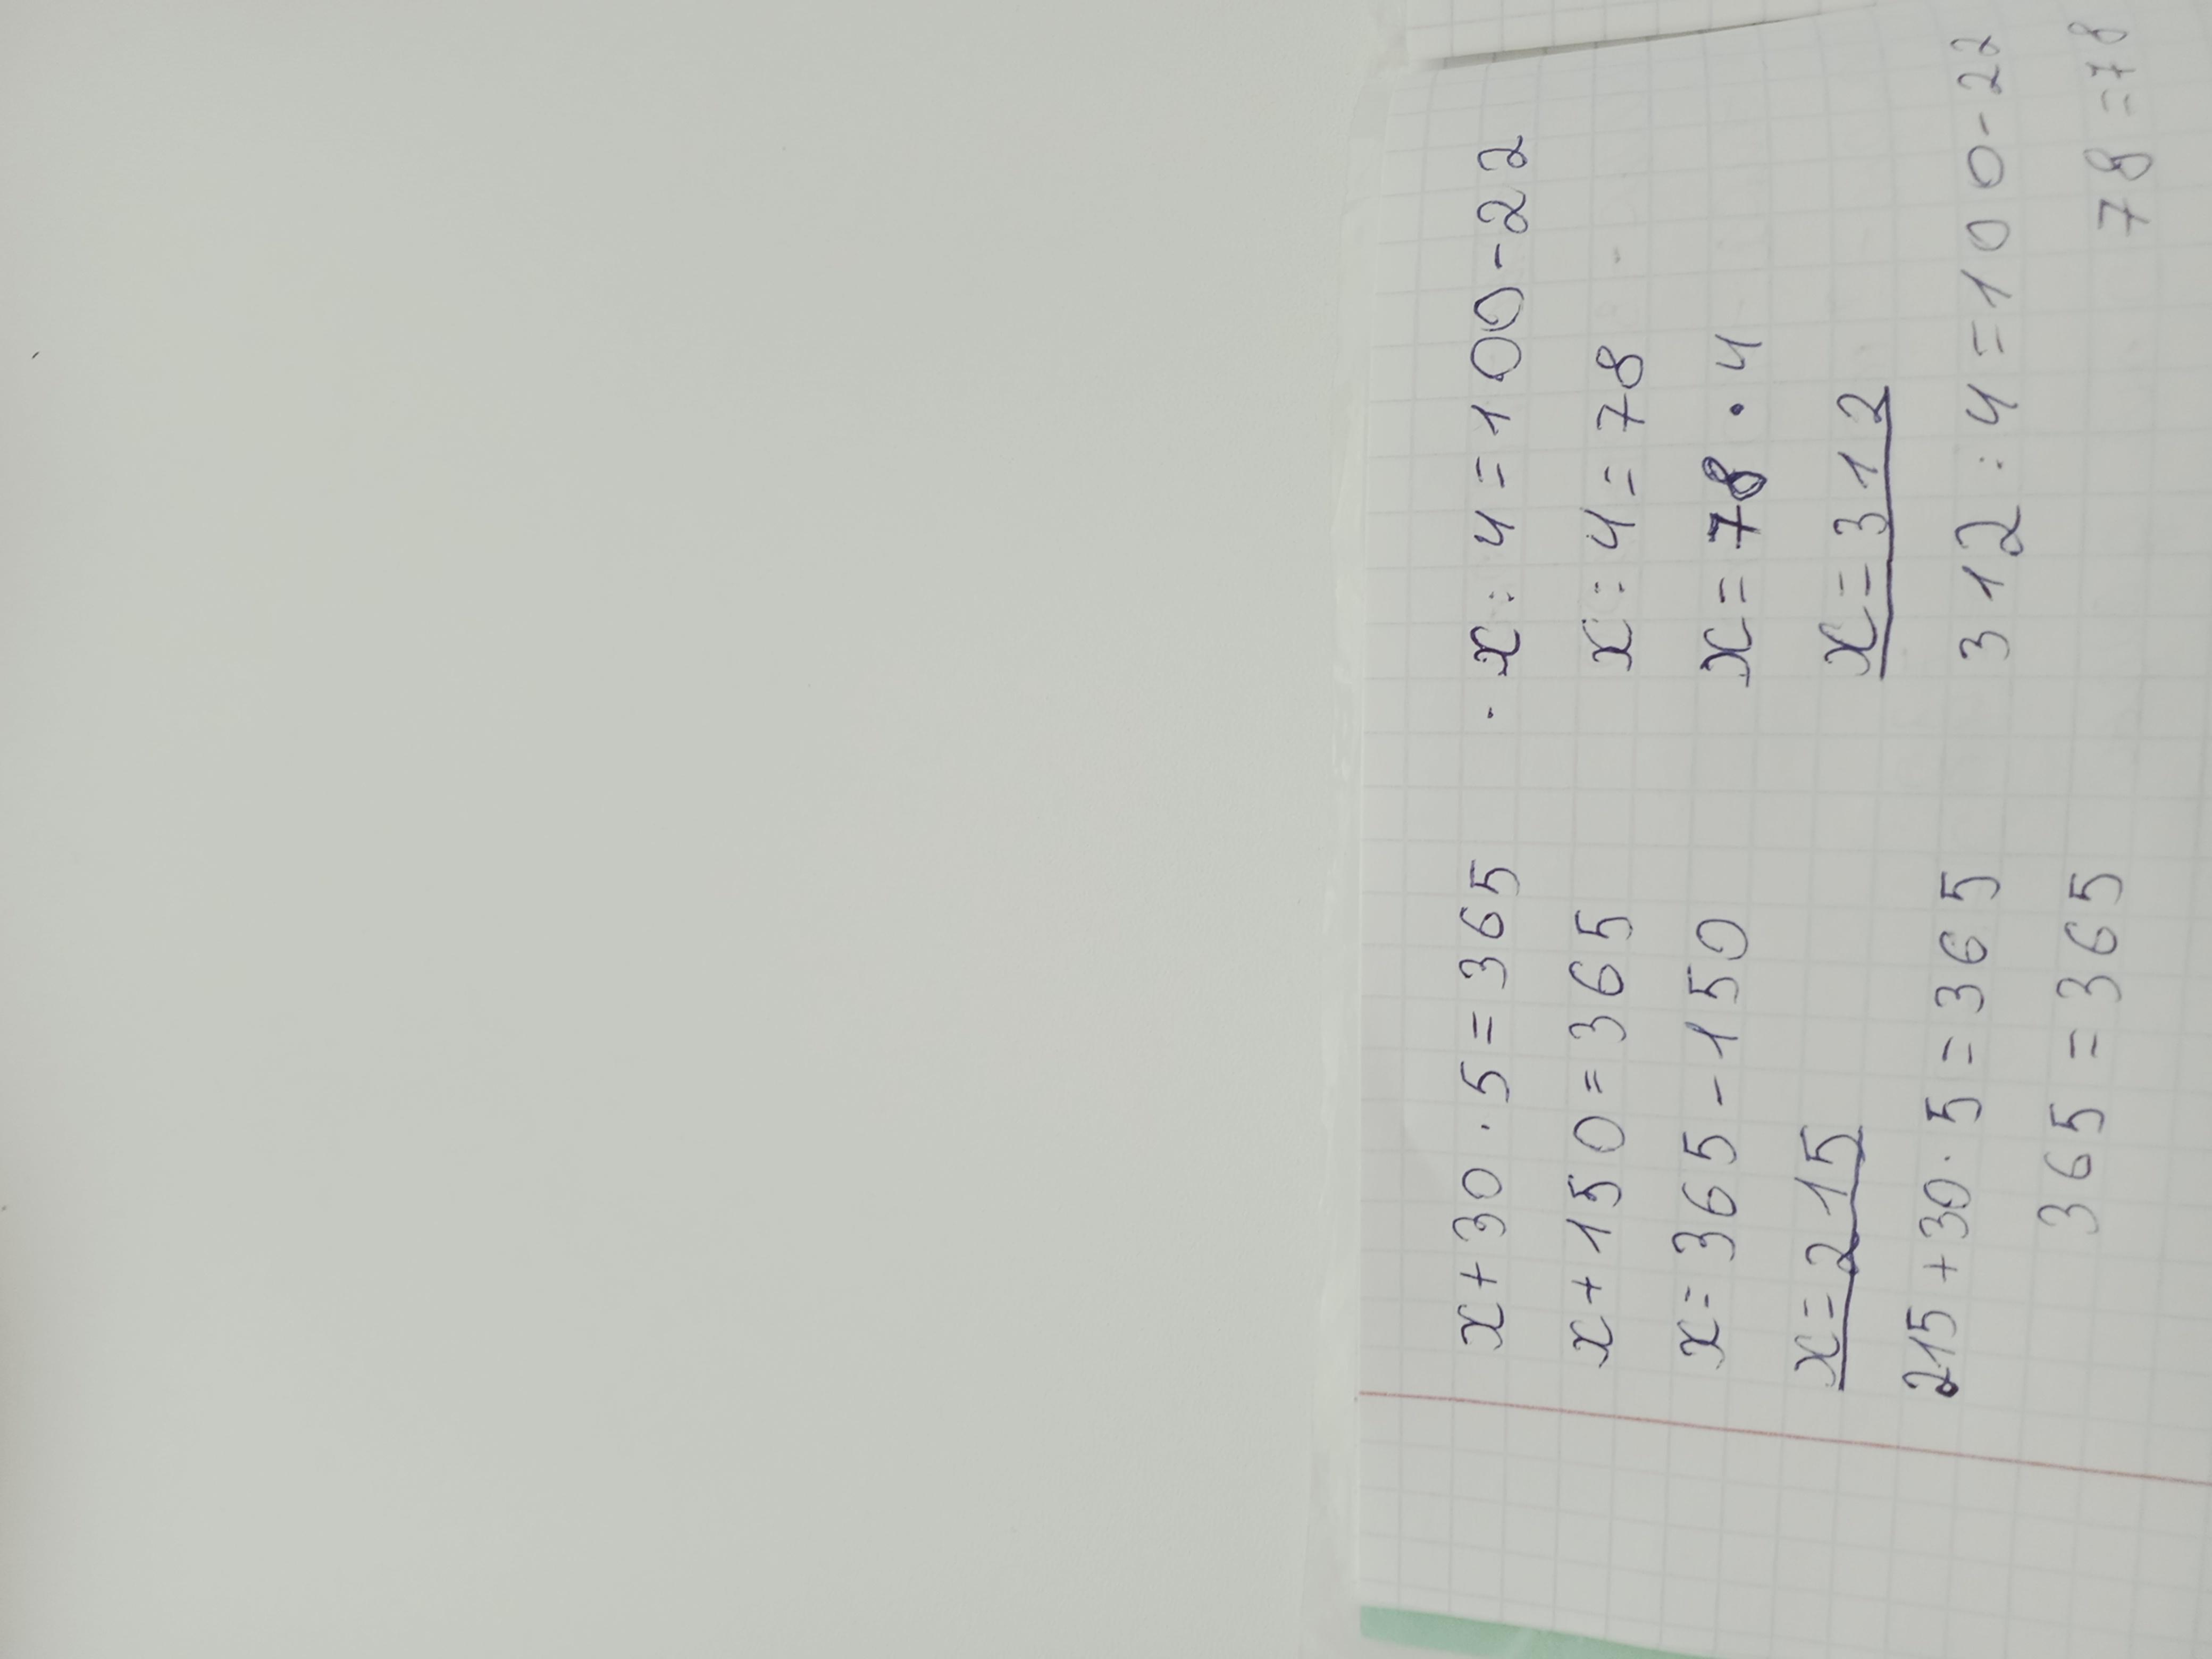 x+30·5=365
x+150=365
x=365-150
x=215
215+30·5=365
365=365
x:4=100-22
x:4=78
x=78·4
x=312
312:4=100-22
78=78